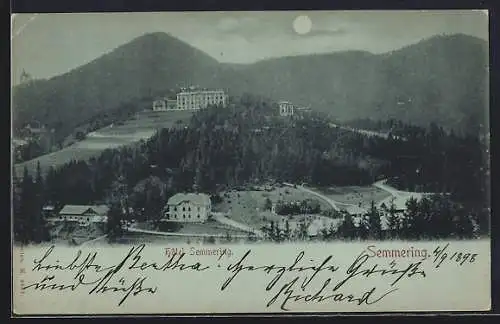 Semmering.
4/9 1898
Hôtel Semmering.
Liebste Bertha! Herzliche Grüße
und Küße
Richard